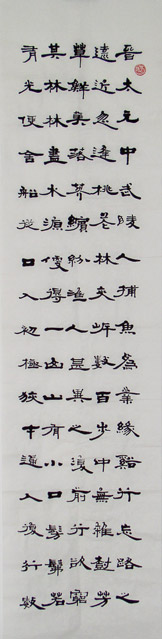 晉太元中武陵人捕魚為業緣谿行忘路之
遠近忽逢桃花林夾岸數百步中無雜樹芳
草鮮美落英繽紛漁人甚異之復前行欲窮
其林林盡水源便得一山山有小口髣髴若
有光便舍船從口入初極狹才通人復行數